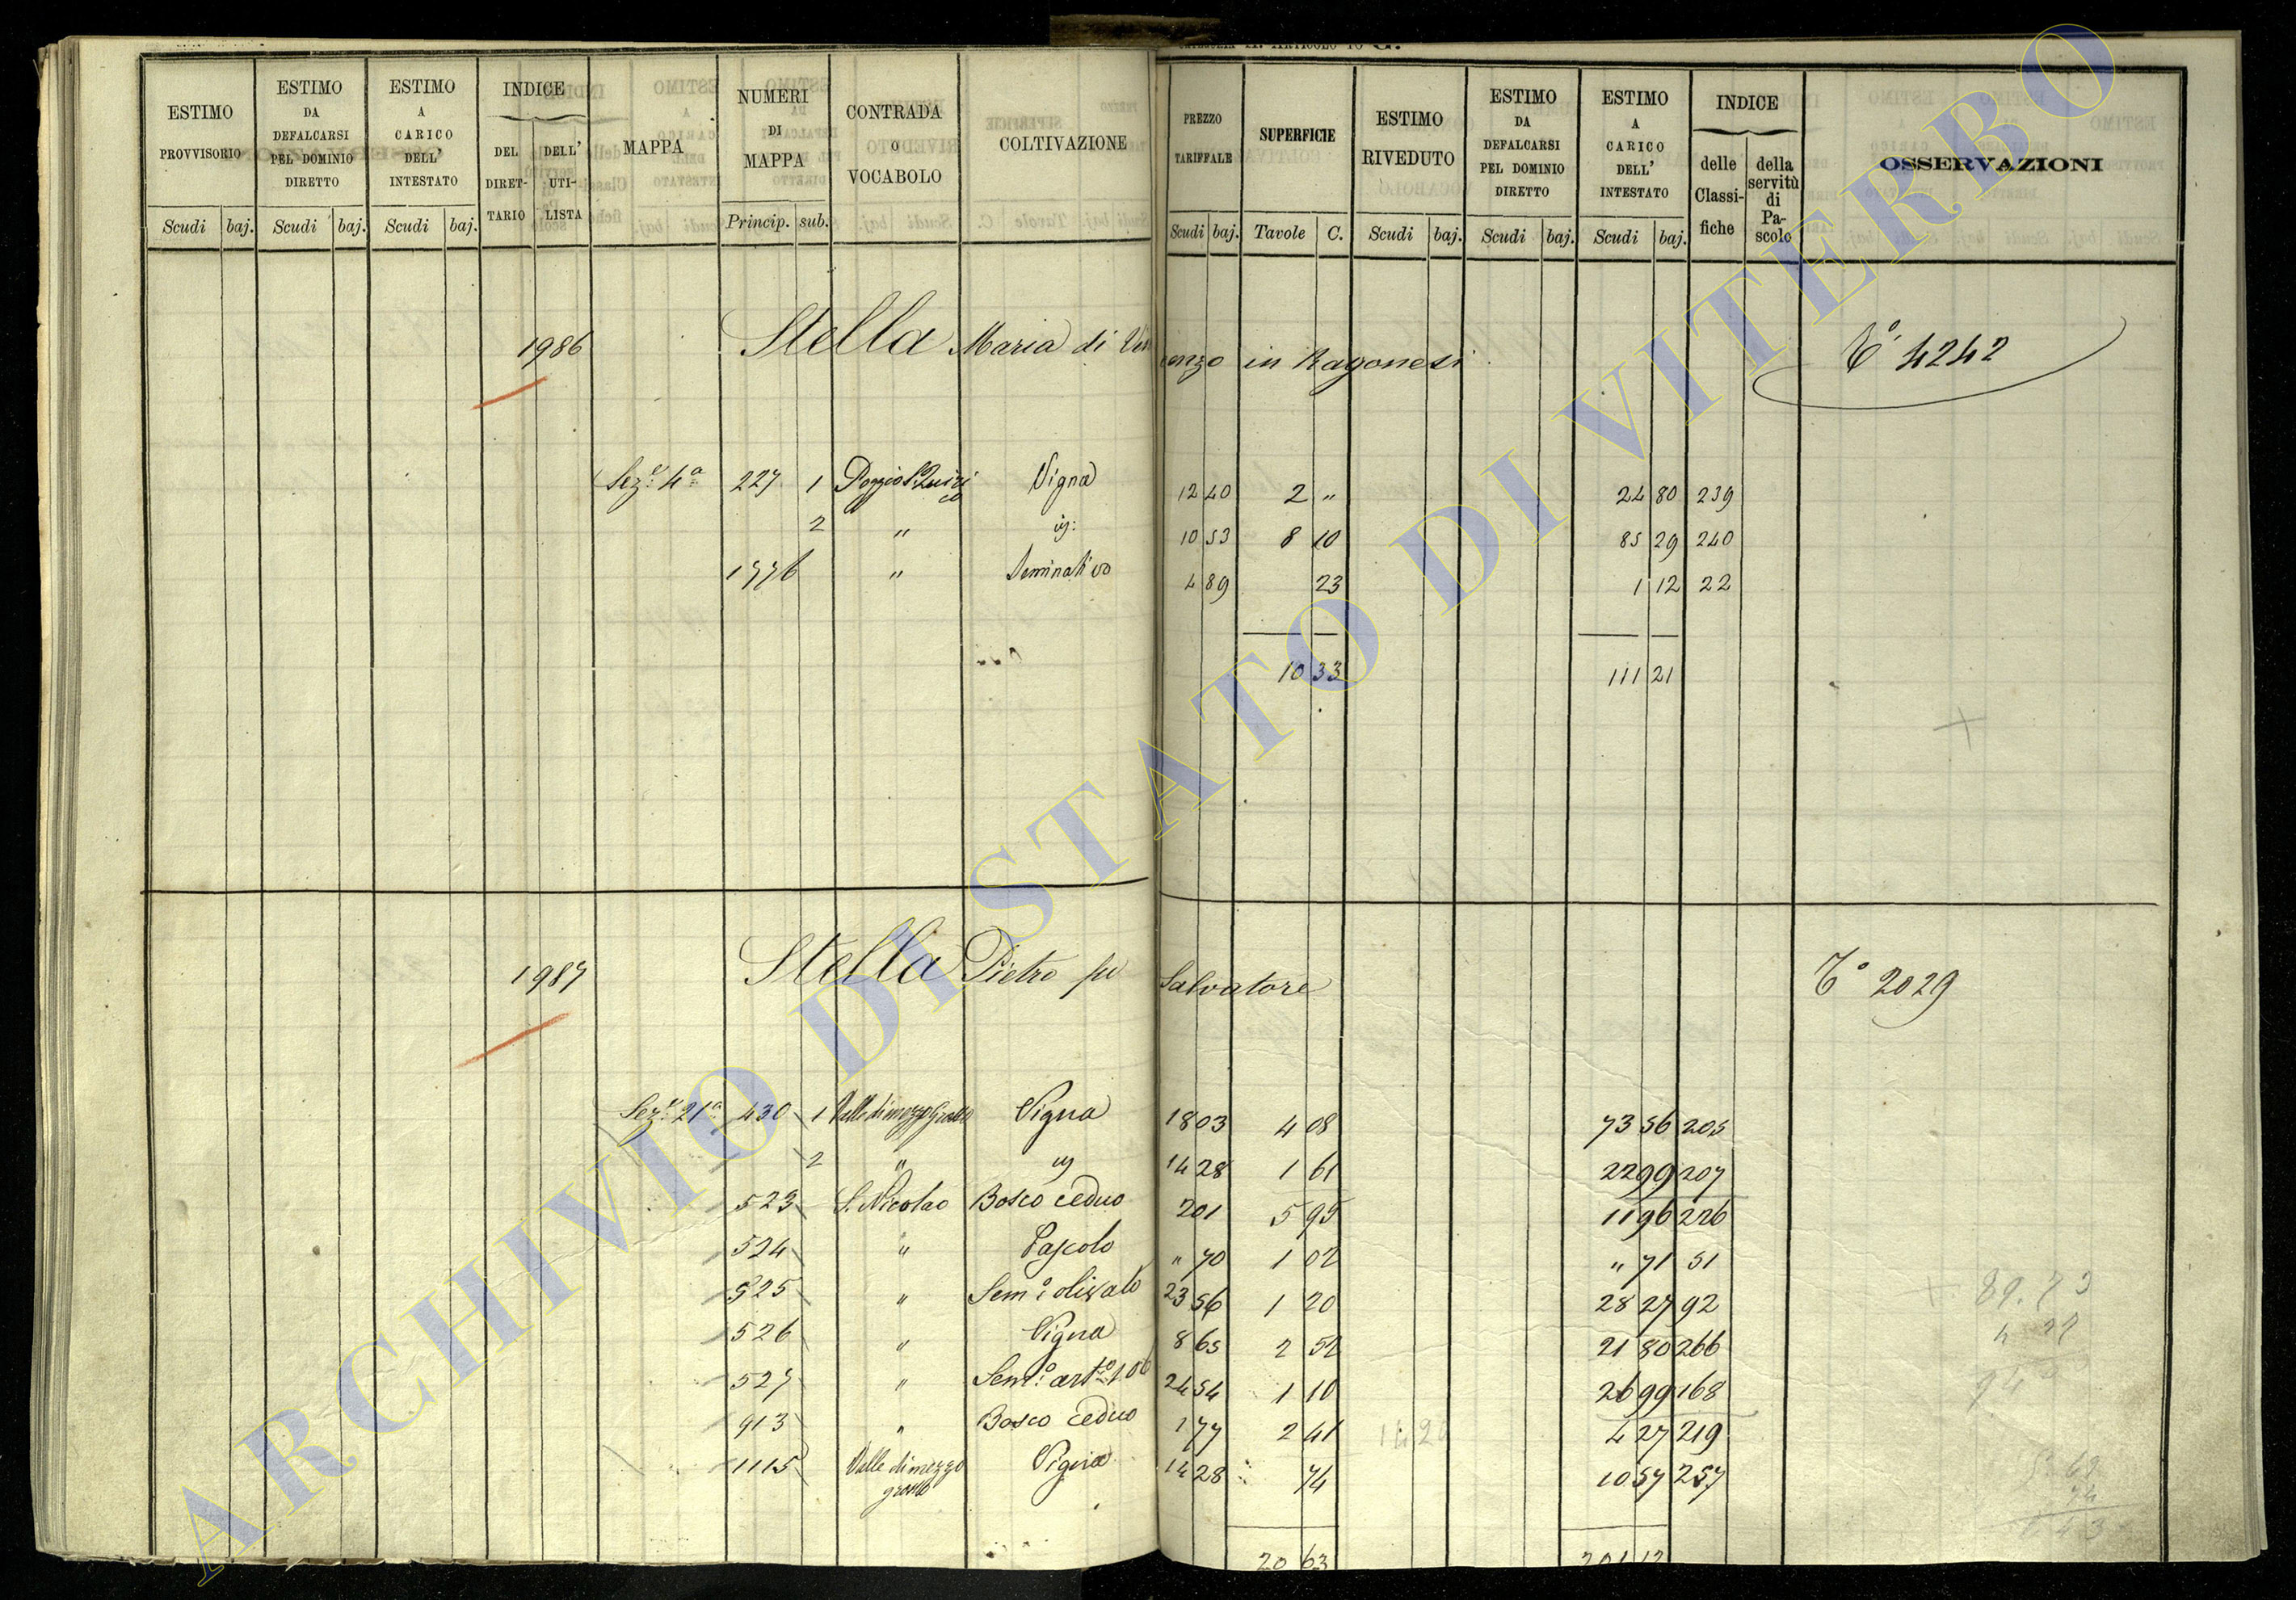 ESTIMO PROVVISORIO Scudi baj.
ESTIMO DA DEFALCARSI PEL DOMINIO DIRETTO Scudi baj.
ESTIMO A CARICO DELL' INTESTATO Scudi baj.
INDICE DEL DIRET- TARIO DELL' UTI- LISTA
MAPPA
NUMERI DI MAPPA Princip. sub.
CONTRADA O VOCABOLO
COLTIVAZIONE
PREZZO TARIFFALE Scudi baj.
SUPERFICIE Tavole C.
ESTIMO RIVEDUTO Scudi baj.
ESTIMO DA DEFALCARSI PEL DOMINIO DIRETTO Scudi baj.
ESTIMO A CARICO DELL' INTESTATO Scudi baj.
INDICE delle Classi- fiche della servitù di Pa- scolo
OSSERVAZIONI
1986 Stella Maria di Vincenzo in Ragonesi To 4242
Seze 4a 227 1 Poggio S. Quirico Vigna 12 40 2 " 24 80 239
2 " 10 53 8 10 85 29 240
1776 " Seminativo 4 89 23 1 12 22
10 33 111 21
1987 Stella Pietro fu Salvatore To 2029
Seze 21a 430 1 Valle di mezzo Grosso Vigna 18 03 4 08 73 56 205
2 " 14 28 1 61 22 99 207
523 S. Nicolao Bosco ceduo 2 01 5 95 11 96 226
524 " Pascolo " 70 1 02 " 71 51
525 " Semo olivato 23 56 1 20 28 27 92
526 " Vigna 8 65 2 52 21 80 266
527 " Semo 24 54 1 10 26 99 168
913 " Bosco ceduo 1 77 2 41 4 27 219
1115 Valle di mezzo grosso Vigna 14 28 74 10 57 257
20 63 201 12
ARCHIVIO DI STATO DI VITERBO